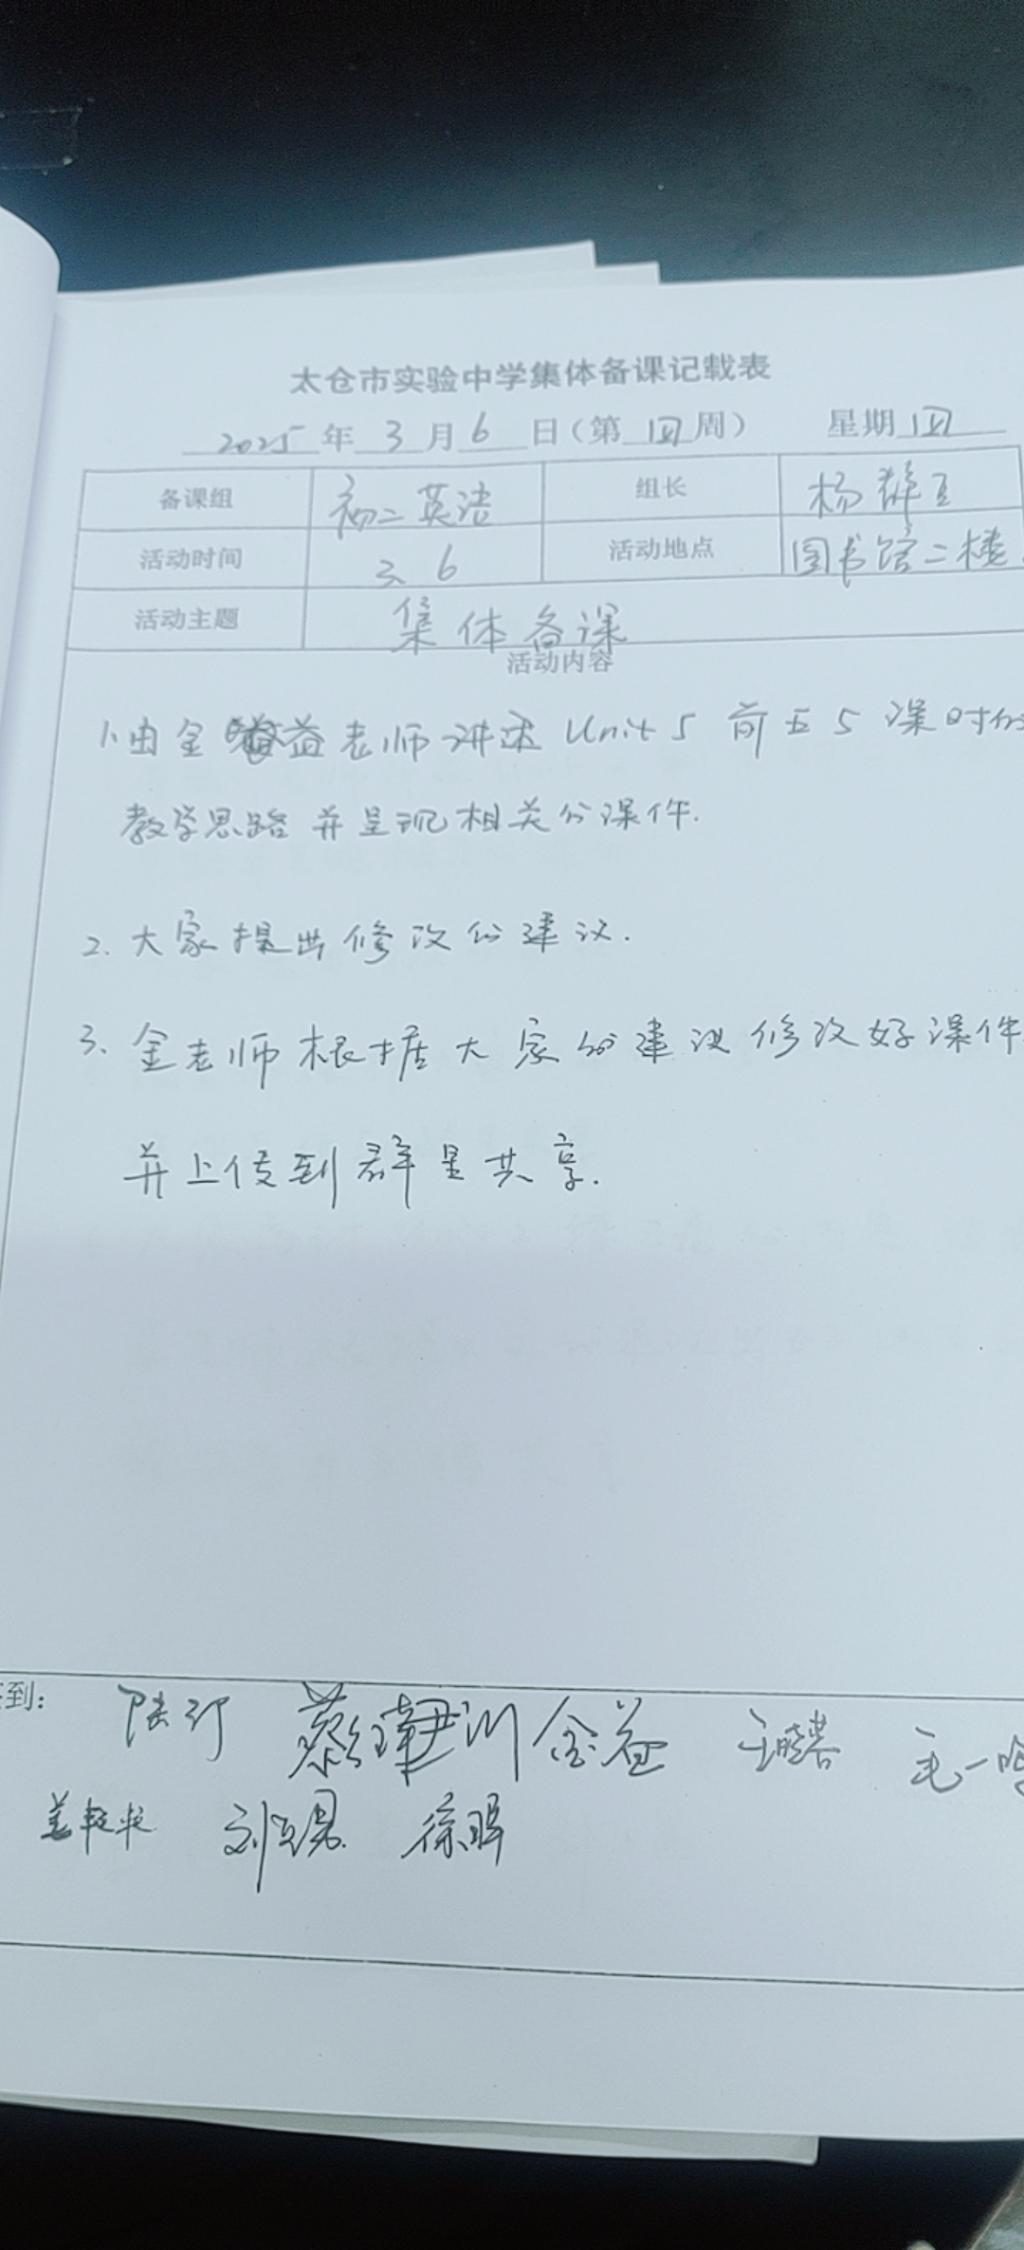 太仓市实验中学集体备课记载表
2025年3月6日（第四周） 星期四
备课组 初二英语 组长 杨群
活动时间 3、6 活动地点 图书馆二楼
活动主题 集体备课
活动内容
1.由金益老师讲述 Unit 5 前五5课时的
教学思路并呈现相关的课件.
2.大家提出修改的建议.
3、金老师根据大家的建议修改好课件
并上传到群里共享.
到：
金益 毛一鸣
徐晖